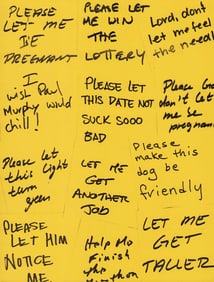 PLEASE
LET ME
BE
PREGNANT
PLEASE LET
ME WIN
THE
LOTTERY
Lord, dont
let me feel
the needle
I
wish Paul
Murphy would
chill!
PLEASE LET
THIS DATE NOT
SUCK SOOO
BAD
Please God
don't let
me be
pregnant
Please let
this light
turn
green
LET ME
GET
ANOTHER
JOB
Please
make this
dog be
friendly
PLEASE
LET HIM
NOTICE
ME
Help Me
Finish
the
LET ME
GET
TALLER